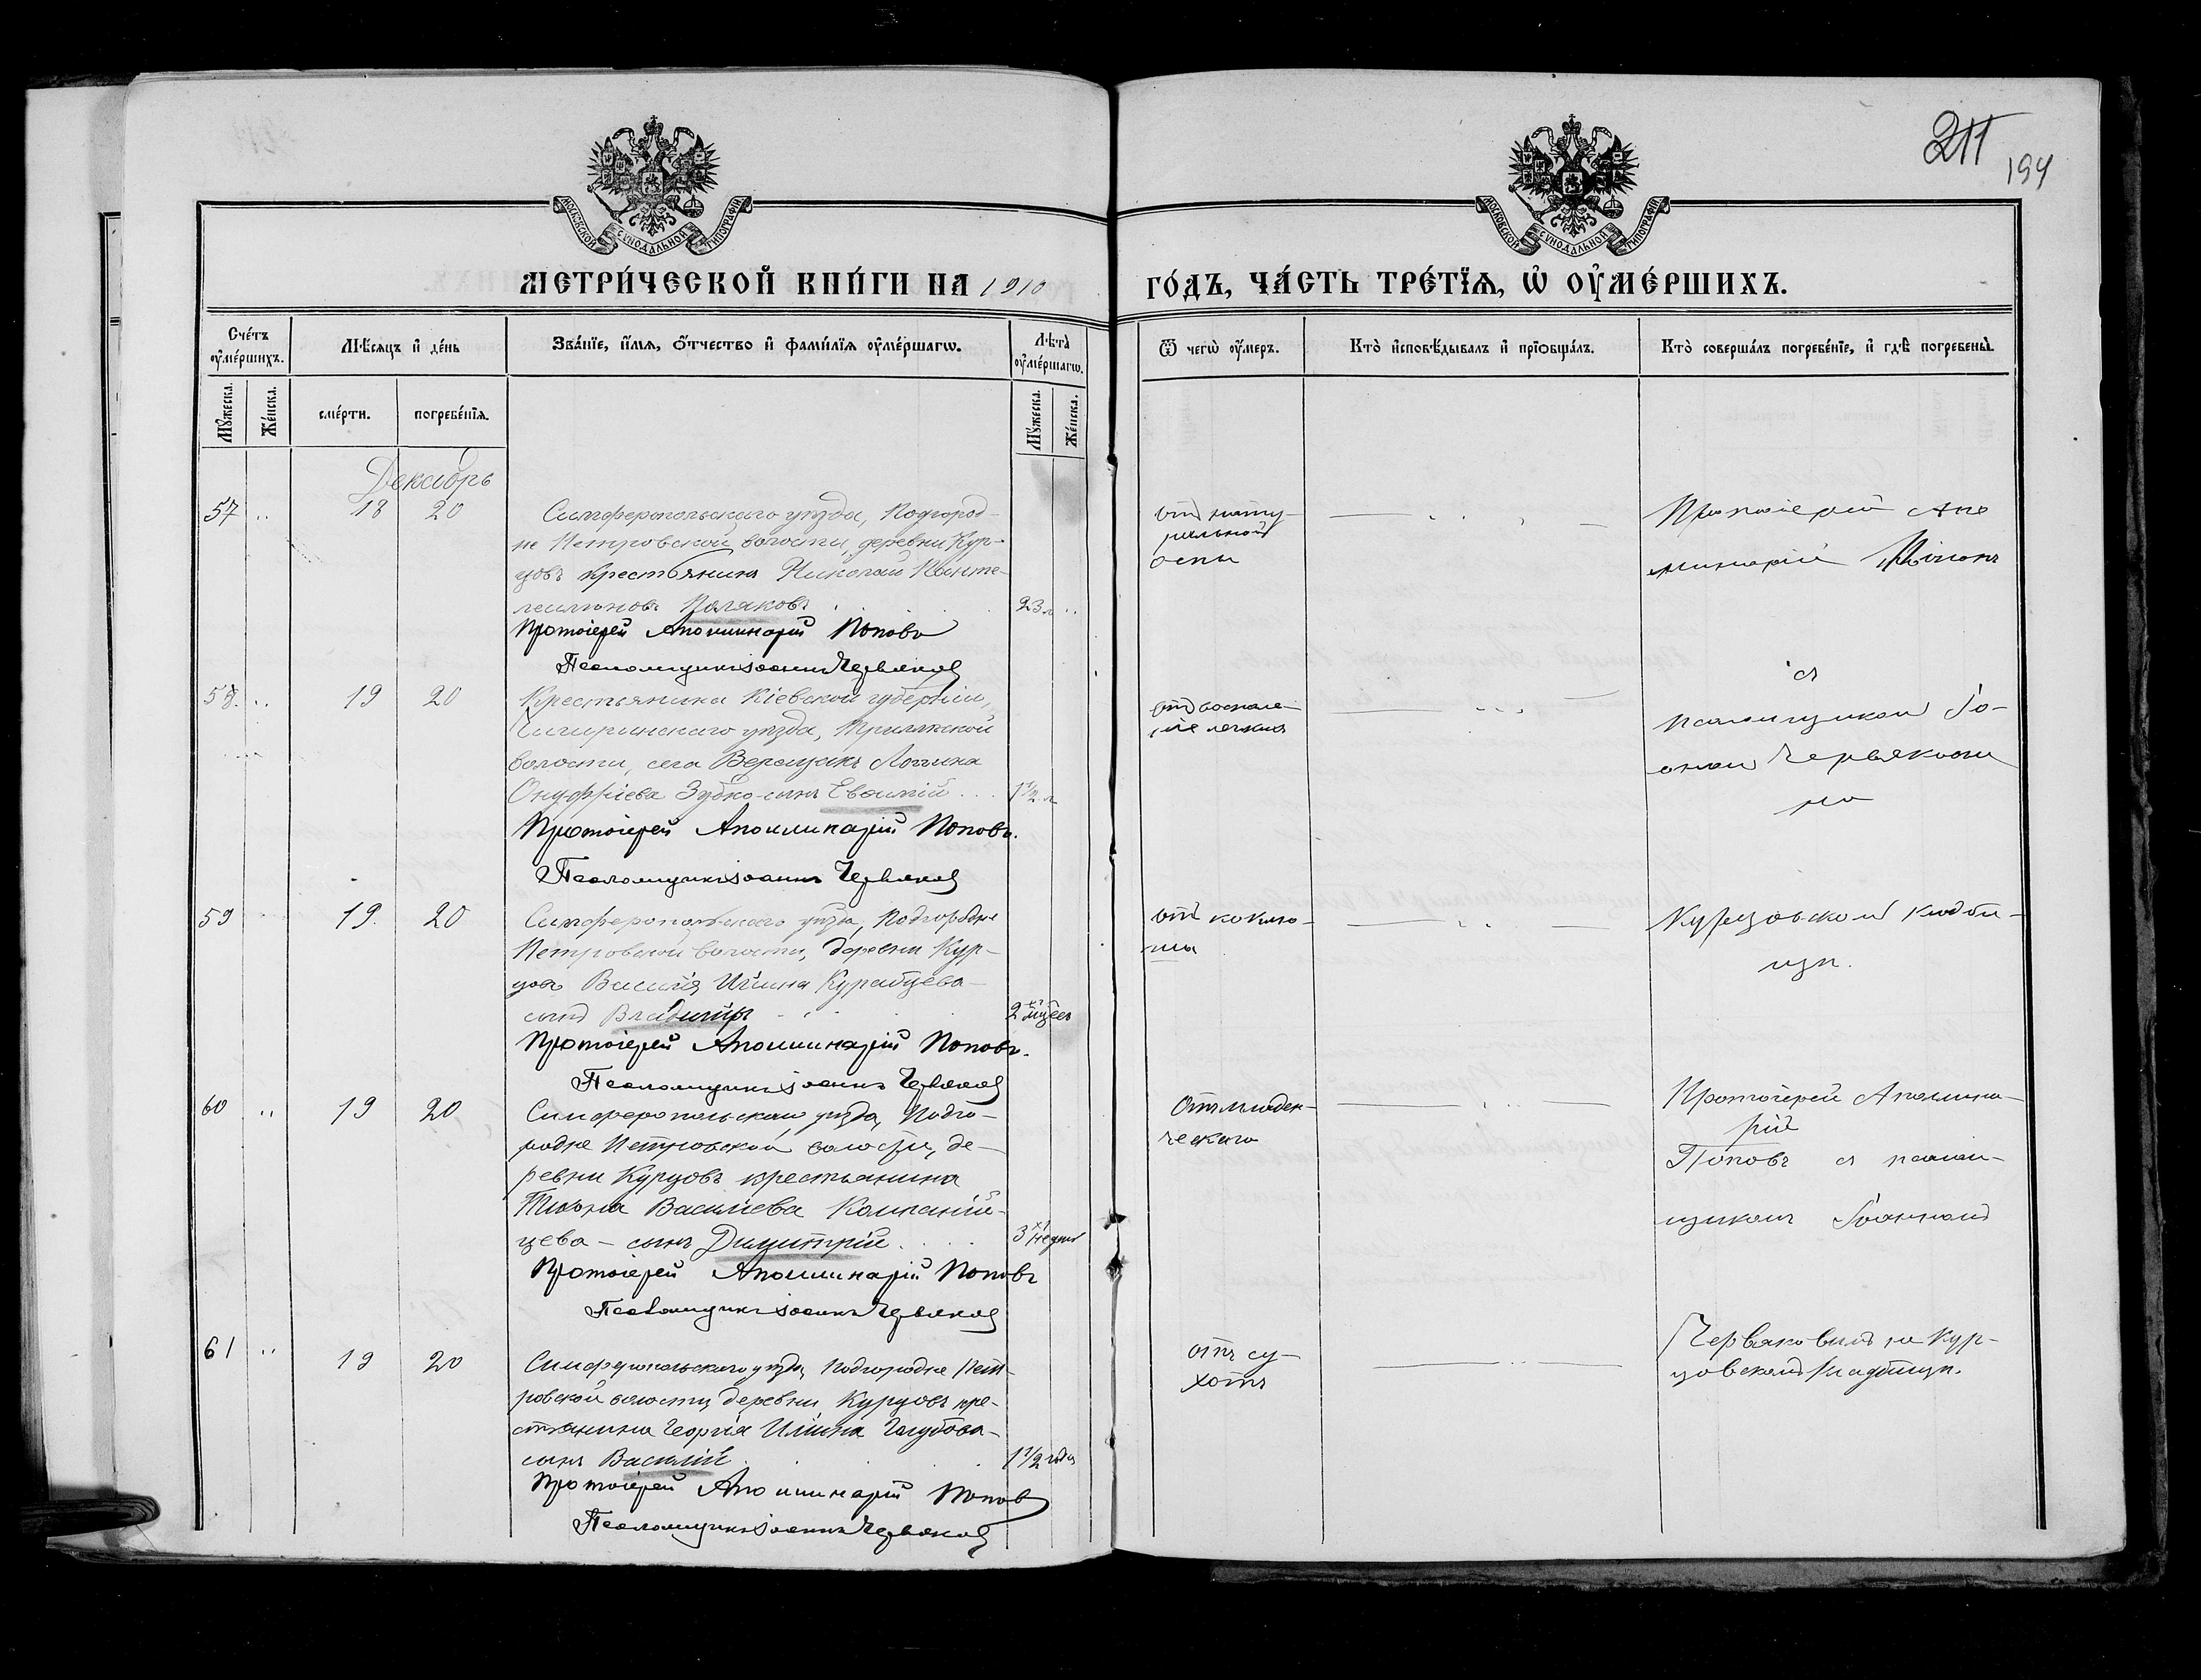 211
194
МОСКОВСКОЙ СѴНОДАЛЬНОЙ ТИПОГРАФІИ
МОСКОВСКОЙ СѴНОДАЛЬНОЙ ТИПОГРАФІИ
МЕТРИ́ЧЕСКОЙ КНИ́ГИ НА 1910
ГО́ДЪ, ЧА́СТЬ ТРЕ́ТЇѦ, Ѡ҆ ОУ҆МЕ́РШИХЪ.
Сче́тъ оу҆ме́ршихъ.
Мѣ́сяцъ и҆ де́нь
Зва́нїе, и҆́мѧ, ѻ҆́тчество и҆ фами́лїѧ оу҆ме́ршагѡ.
Лѣ̀та оу҆ме́ршагѡ.
Ѿ чегѡ̀ оу҆́меръ.
Кто̀ и҆сповѣ́дывалъ и҆ прїѻбща́лъ.
Кто̀ соверша́лъ погребе́нїе, и҆ гдѣ̀ погребены̀.
Мꙋ́жеска.
Же́нска.
сме́рти.
погребе́нїѧ.
Мꙋ́жеска.
Же́нска.
Декабрь
57 18 20 Симферопольскаго уѣзда, Подгород-
не Петровской волости, деревни Кур-
цовъ крестьянинъ Николай Панте-
леимоновъ Поляковъ 23 л
Протоіерей Аполлинарій Поповъ
Псаломщикъ Іоаннъ Червяковъ
отъ нату-
ральной
оспы
Протоіерей Апо
линарій Поповъ
58. 19 20 Крестьянина Кіевской губерніи,
Чигиринскаго уѣзда,
волости, села Верещакъ Логгина
Онуфріева Зубко-сынъ Евѳимій 1 1/2 л
Протоіерей Аполлинарій Поповъ.
Псаломщикъ Іоаннъ Червяковъ
отъ воспале-
ніе легкихъ
съ
псаломщикомъ Іо-
анномъ Червяковы
на
59 19. 20 Симферопольскаго уѣзда, Подгородне
Петровской волости, деревни Кур-
цовъ Василія Иліина
сынъ Владиміръ 2 хъ мѣсяц
Протоіерей Аполлинарій Поповъ.
Псаломщикъ Іоаннъ Червяковъ
отъ коклю-
ша
Курцовскомъ кладби-
щѣ.
60 19 20 Симферопольскаго уѣзда, Подго-
родне Петровской волости, де-
ревни Курцовъ крестьянина
Тихона Васильева Компаній-
цева - сынъ Димитрій 3 хъ недѣль
Протоіерей Аполлинарій Поповъ
Псаломщикъ Іоаннъ Червяковъ
Отъ младен-
ческаго
Протоіерей Аполлина-
рій
Поповъ съ псалом-
щикомъ Іоанномъ
61 19 20 Симферопольскаго уѣзда, Подгородне Пет-
ровской волости, деревни Курцовъ кре-
стьянина Георгія Иліина Голубова-
сынъ Василій 1 1/2 года
Протоіерей Аполлинарій Поповъ
Псаломщикъ Іоаннъ Червяковъ
отъ су-
хотъ
Червяковымъ на Кур-
цовскомъ кладбищѣ.